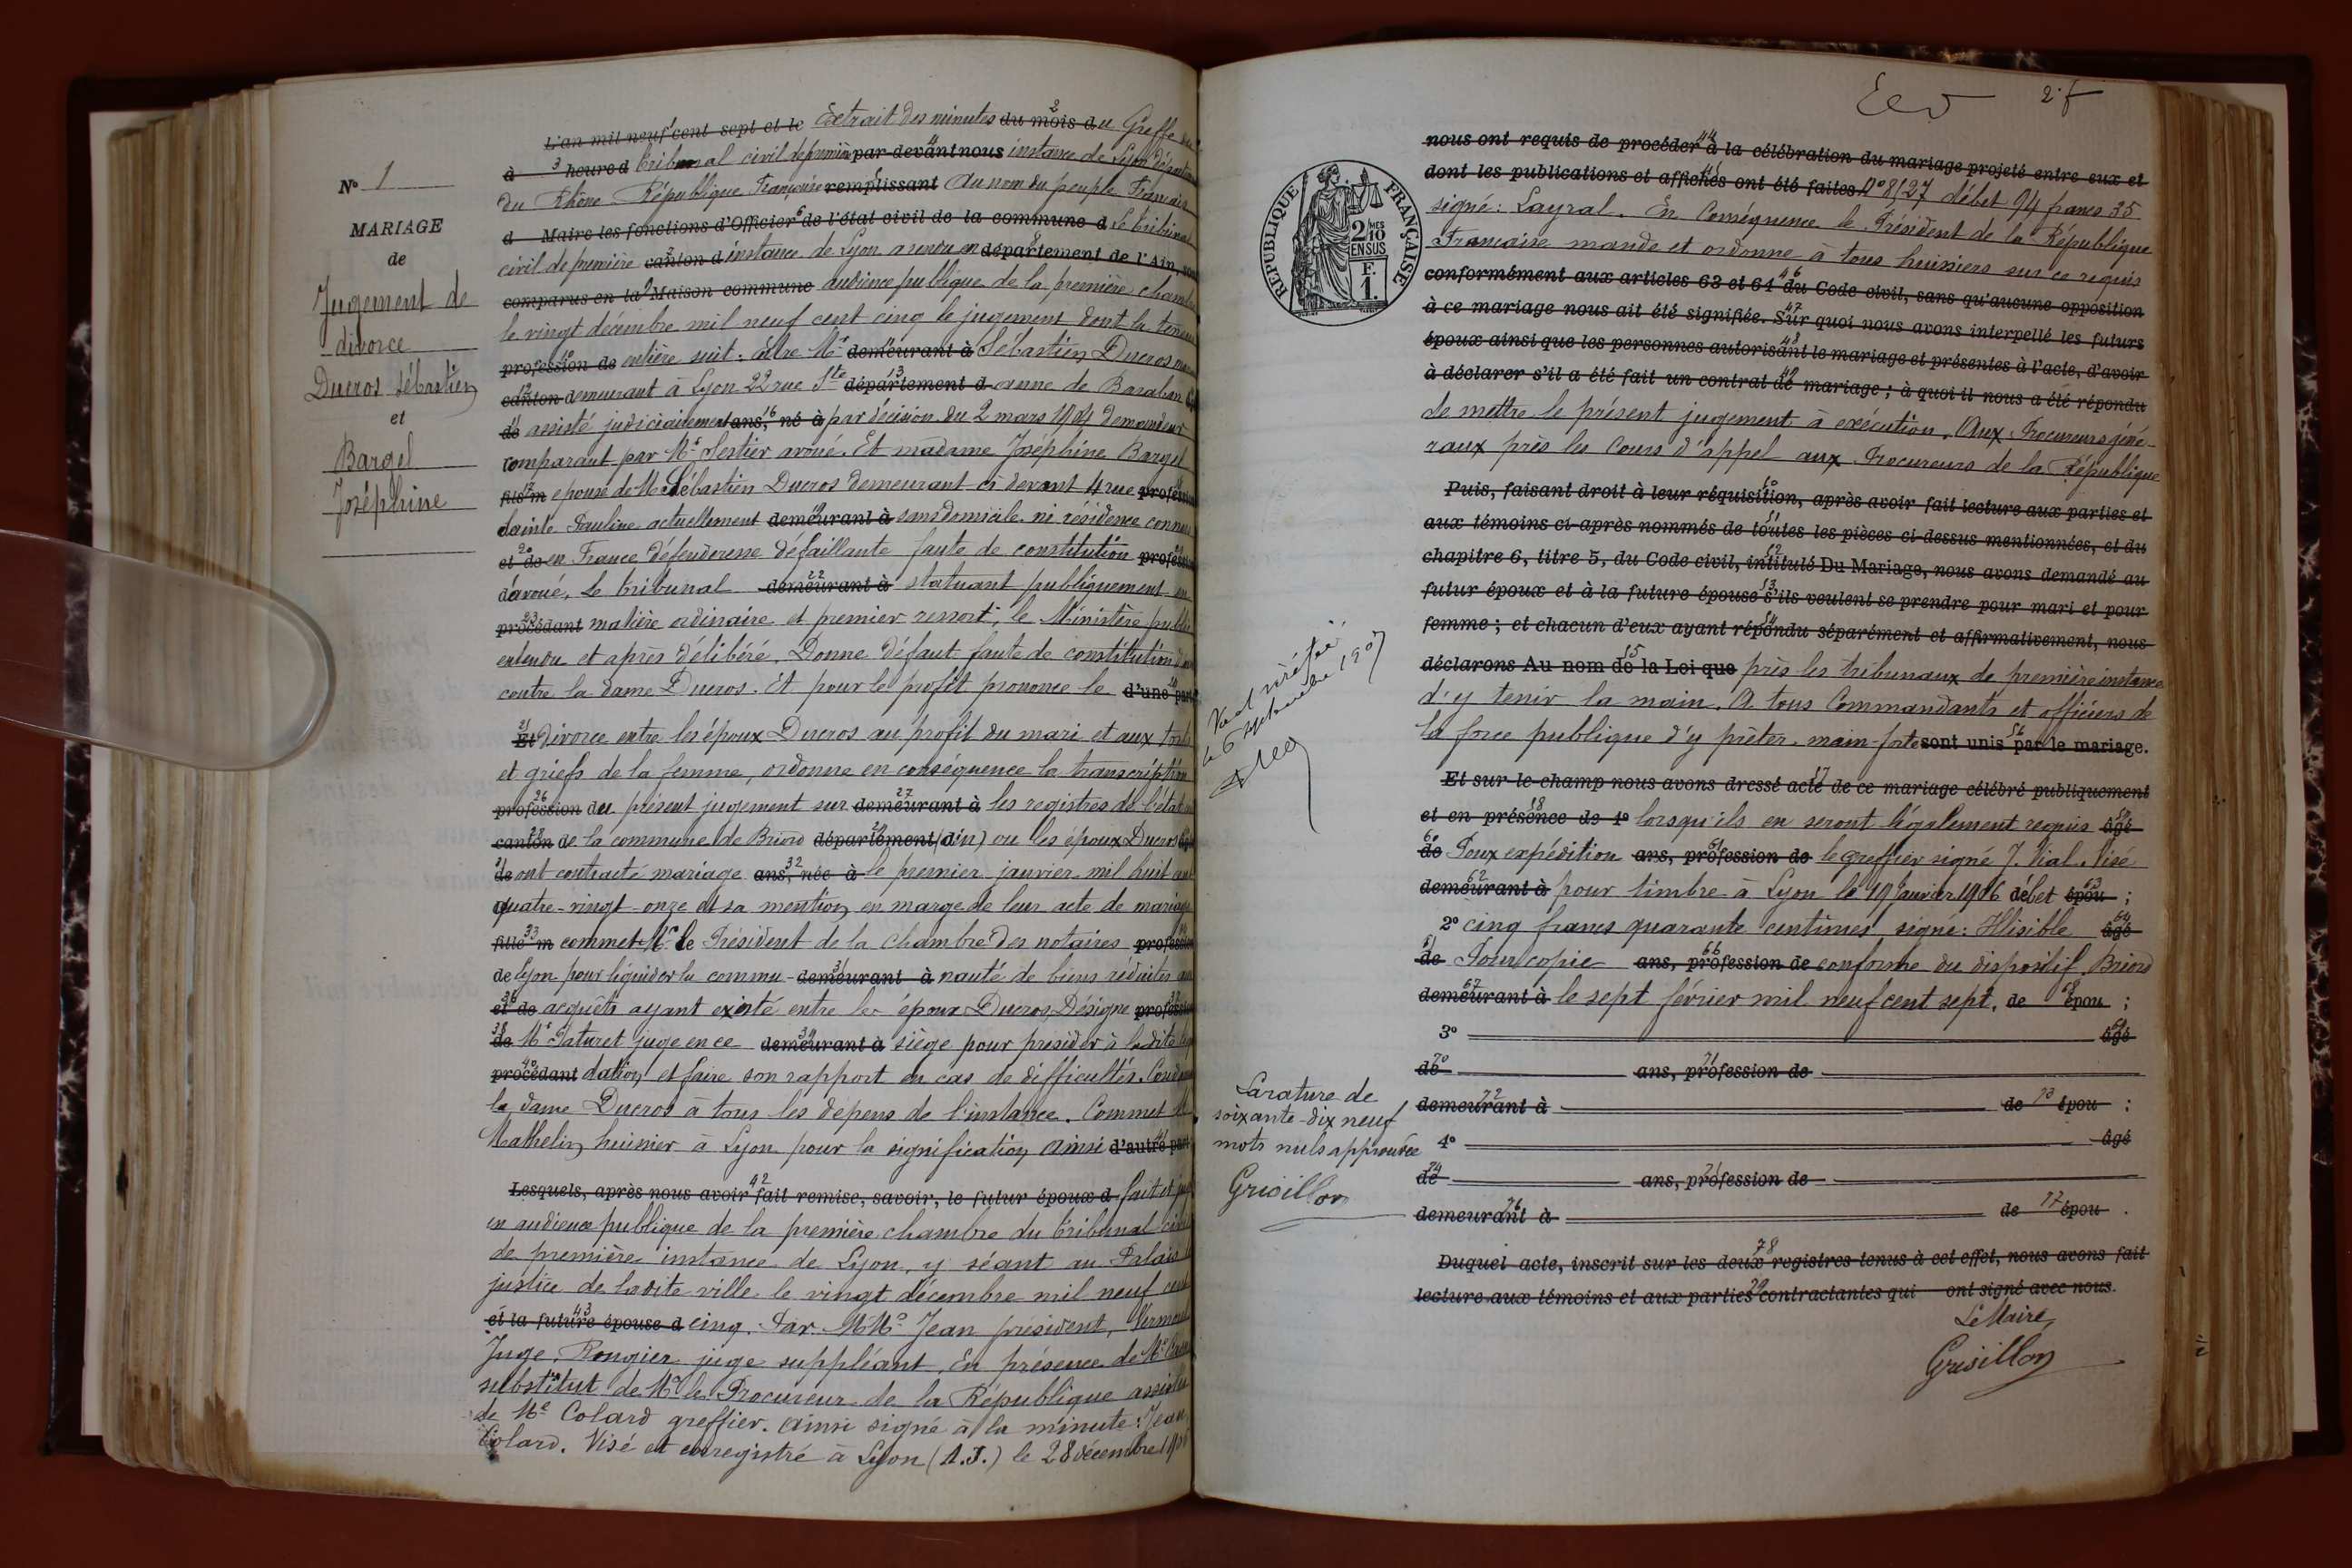 N° 1
MARIAGE
de
Jugement de
divorce
Ducros Sébastien
et
Bargel
Joséphine
L'an mil neuf cent sept et le Extrait des minutes du mois d 2 u Greffe du
à 3 heure d Tribunal civil de première par devant nous 4 instance de Lyon départ
du Rhône République Française remplissant Au nom du peuple Français
d Maire les fonctions d'Officier 6 de l'état civil de la commune d Le tribunal
civil de première canton d instance de Lyon a rendu en département de l'Ain,
comparus en la 9 Maison commune audience publique de la première chamb
le vingt décembre mil neuf cent cinq le jugement dont la teneur
profession de 10 entière suit: Entre Mr demeurant à Sébastien Ducros
canton 12 demeurant à Lyon 22 rue Ste département d 13 anne de Baraban
de assisté judiciairement ans, 16 né à par décision du 2 mars 1904 demandeur
comparant par Me Sestier avoué. Et madame Joséphine Bargel
fils 17 m epouse de M Sébastien Ducros demeurant ci devant 4 rue profession
Sainte Pauline actuellement demeurant à 19 sans domicile ni résidence connus
et de 20 en France défenderesse défaillante faute de constitution profession
d'avoué. Le tribunal demeurant à 22 statuant publiquement en
procédant 23 matière ordinaire et premier ressort, le Ministère public
entendu et après délibéré. Donne défaut faute de constitution
contre la dame Ducros. Et pour le profit prononce le d'une part
Et divorce entre les époux Ducros au profit du mari et aux torts
et griefs de la femme, ordonne en conséquence la transcription
profession 26 du présent jugement sur demeurant à 27 les registres de l'état
canton 28 de la commune de Briord département (Ain) ou les époux Ducros
de ont contracté mariage ans, 32 née à le premier janvier mil huit cent
quatre-vingt-onze et sa mention en marge de leur acte de mariage
fille 33 m commet Mr le Président de la chambre des notaires profession
de Lyon pour liquider la commu- demeurant à nauté de biens réduite aux
et de 36 acquêts ayant existé entre les époux Ducros, Désigne profession
de 38 Mr Paturet juge en ce demeurant à 39 siège pour présider à ladite
procédant 40 dation et faire son rapport en cas de difficultés. Condamne
la dame Ducros à tous les dépens de l'instance. Commet
Mathelin huissier à Lyon pour la signification, Ainsi d'autre part
Lesquels, après nous avoir 42 fait remise, savoir, le futur époux d fait et jugé
en audience publique de la première chambre du tribunal civil
de première instance de Lyon, y séant au Palais de
justice de ladite ville le vingt décembre mil neuf cent
et la future 43 épouse d cinq. Par MMrs Jean président,
Juge, Rougier juge suppléant. En présence de Mr
substitut de Mr le Procureur de la République assistés
de Me Colard greffier. Ainsi signé à la minute: Jean,
Colard. Visé et enregistré à Lyon (A.J.) le 28 décembre 1905
2 f
RÉPUBLIQUE FRANÇAISE
2 MES
10
EN SUS
F.
1.
nous ont requis de procéder 44 à la célébration du mariage projeté entre eux et
dont les publications et affiches 45 ont été faites N° 8/27 débet 94 francs 35
signé: Layral. En conséquence le Président de la République
Française mande et ordonne à tous huissiers sur ce requis
conformément aux articles 63 et 64 46 du Code civil, sans qu'aucune opposition
à ce mariage nous ait été signifiée. 47 Sur quoi nous avons interpellé les futurs
époux ainsi que les personnes autorisant 48 le mariage et présentes à l'acte, d'avoir
à déclarer s'il a été fait un contrat de 49 mariage; à quoi il nous a été répondu
de mettre le présent jugement à exécution. Aux Procureurs géné-
raux près les Cours d'appel aux Procureurs de la République
Puis, faisant droit à leur réquisition, après avoir fait lecture aux parties et
aux témoins ci-après nommés de toutes les pièces ci-dessus mentionnées, et du
chapitre 6, titre 5, du Code civil, intitulé Du Mariage, nous avons demandé au
futur époux et à la future épouse s'ils veulent se prendre pour mari et pour
femme; et chacun d'eux ayant répondu séparément et affirmativement, nous
déclarons Au nom de la Loi que près les tribunaux de première instance
d'y tenir la main. A tous Commandants et officiers de
la force publique d'y prêter main-forte sont unis par le mariage.
Et sur-le-champ nous avons dressé acte de ce mariage célébré publiquement
et en présence de 1° lorsqu'ils en seront légalement requis âgé
de 60 Pour expédition ans, profession de le greffier signé J. Vial. Visé
demeurant à 62 pour timbre à Lyon le 19 Janvier 1906 débet épou 63 ;
2° cinq francs quarante centimes signé: Illisible âgé 64
de Pour copie ans, profession de 66 conforme du dispositif Briord
demeurant à 67 le sept février mil neuf cent sept. de 68 épou ;
3° âgé
de 70 ans, profession de 71
demeurant à 72 de 73 épou :
4° âgé
de 74 ans, profession de
demeurant à 76 de 77 épou .
Duquel acte, inscrit sur les deux 78 registres tenus à cet effet, nous avons fait
lecture aux témoins et aux parties 79 contractantes qui ont signé avec nous.
Le Maire
Grisillon
La rature de
soixante-dix neuf
mots nuls approuvée
Grisillon